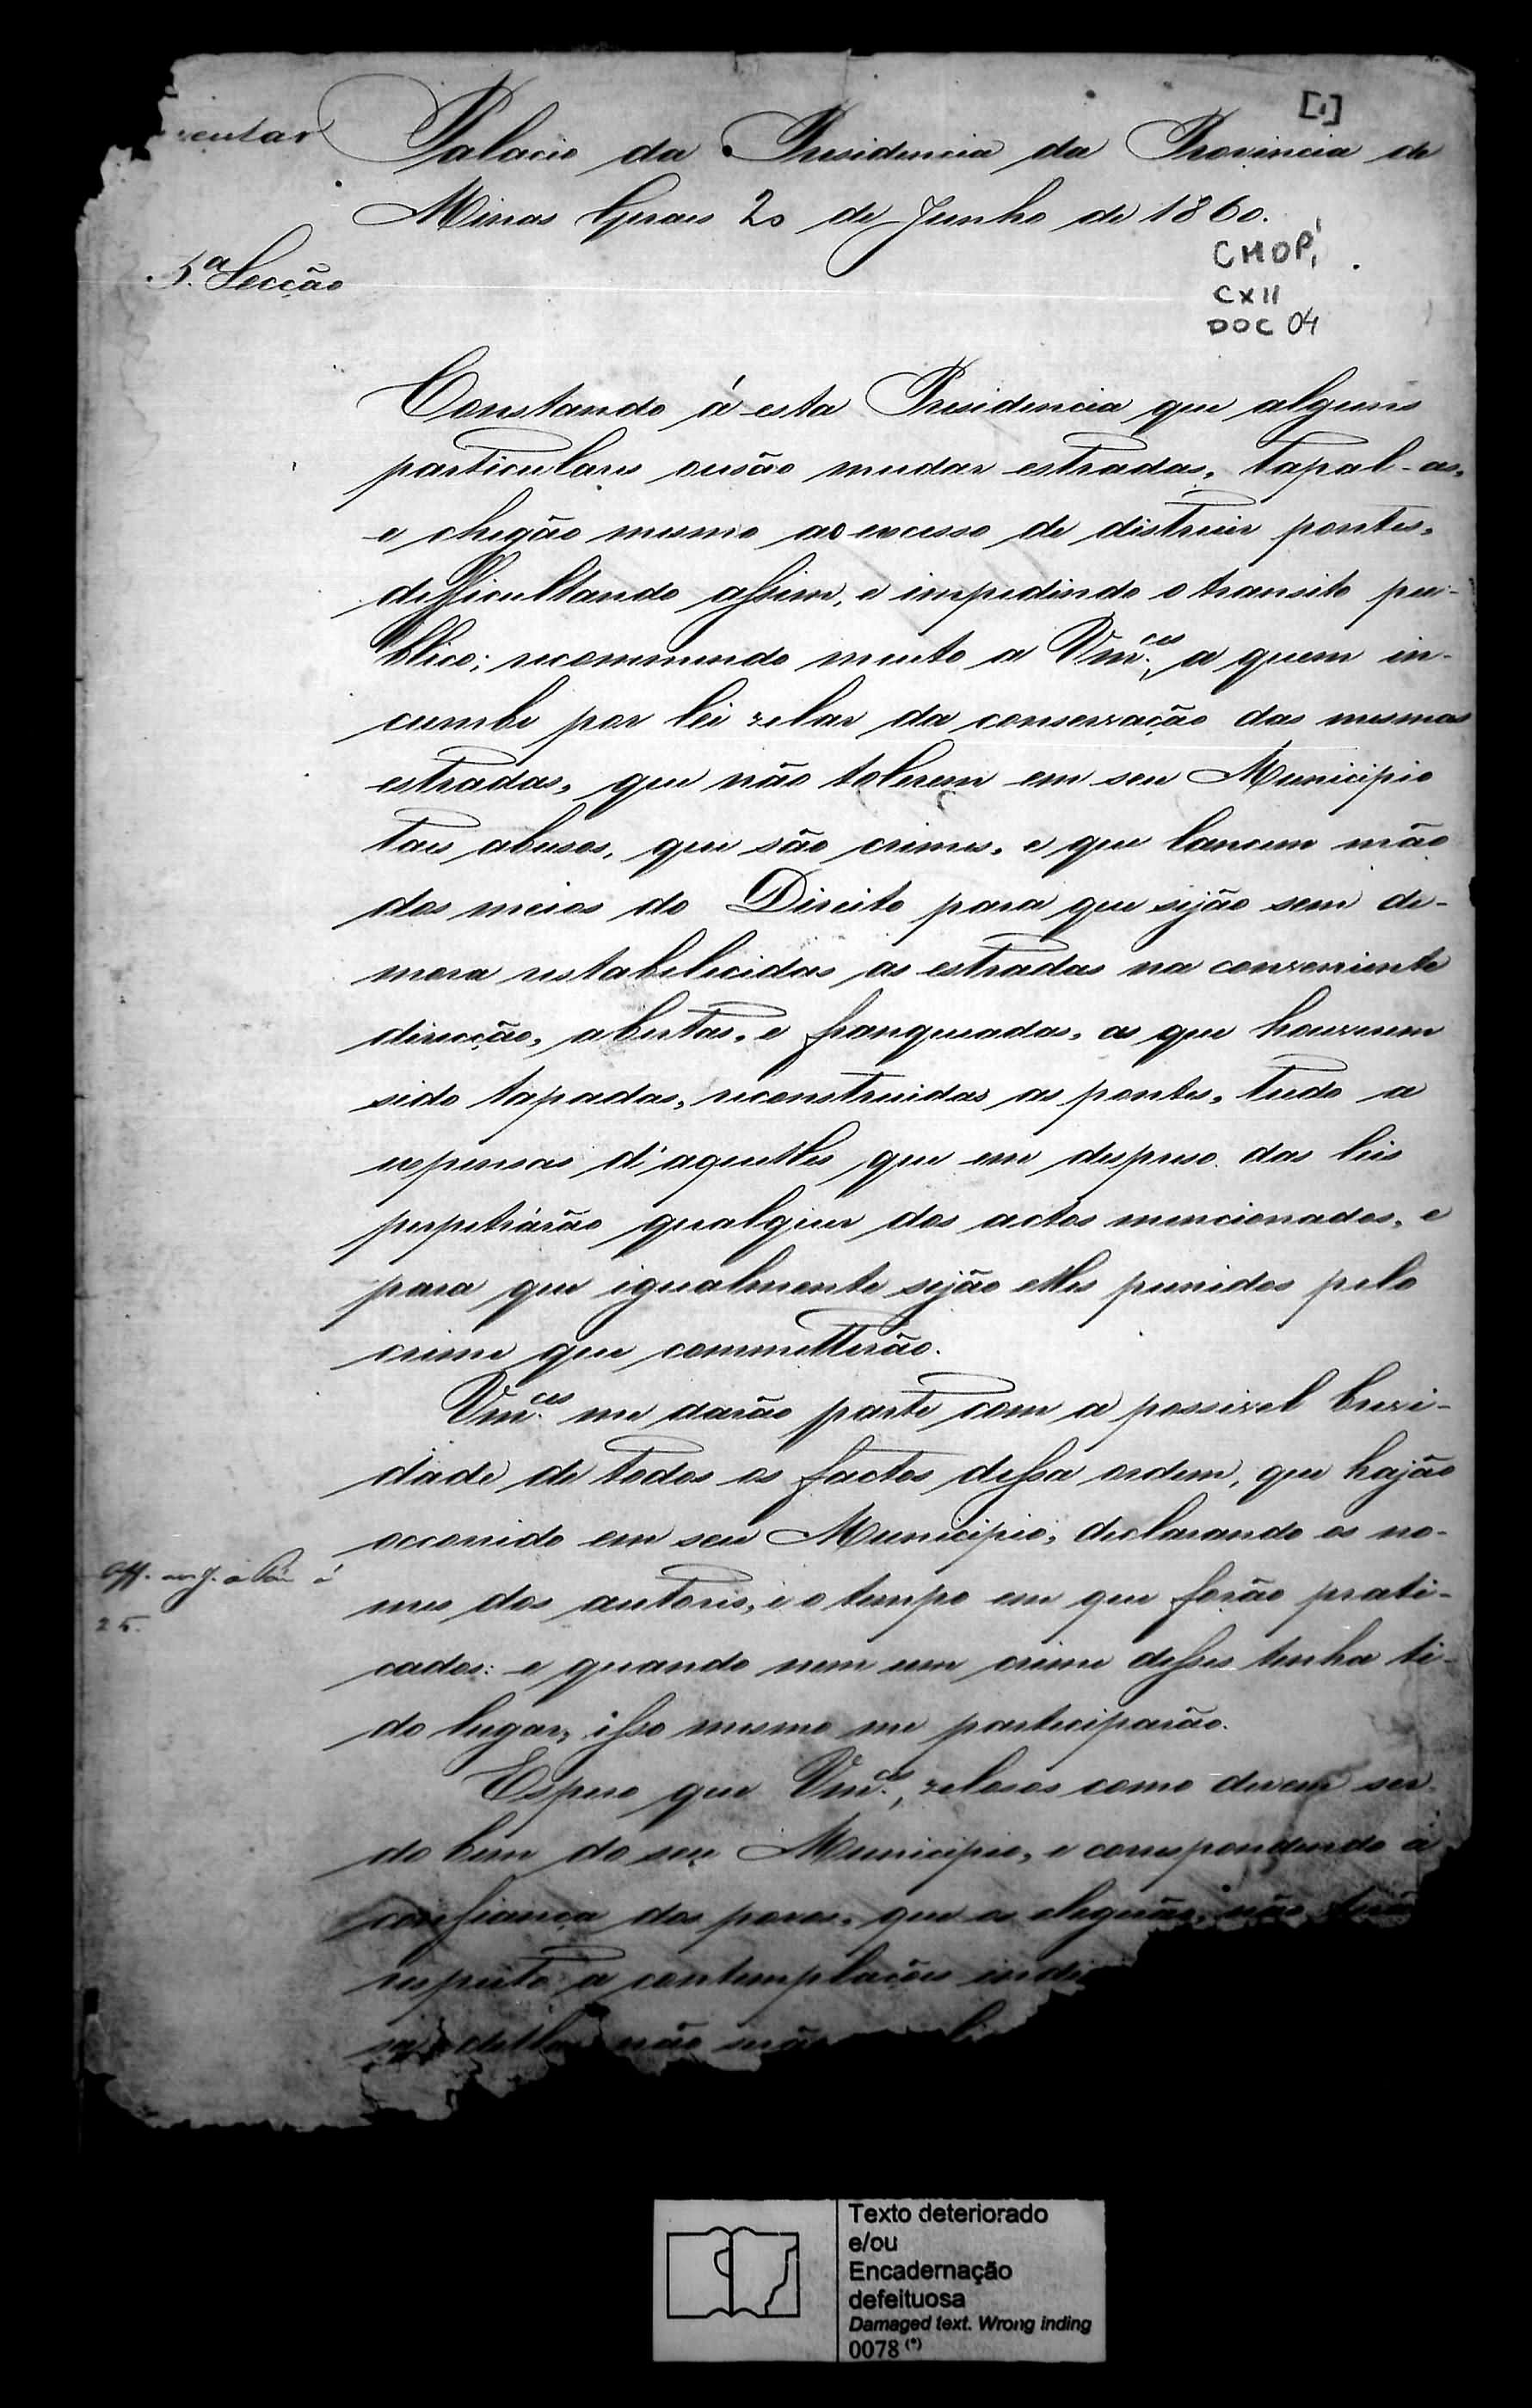 [1]
Palacio da Presidencia da Provincia de
Minas Geraes 20 de Junho de 1860.
CMOP,
CX 11
DOC 04
5.ª Secção
Constando á esta Presidencia que alguns
particulares ousão mudar estradas, tapal-as,
e chegão mesmo ao excesso de distruir pontes,
difficultando assim, e impedindo o transito pu-
blico; recommendo muito a Vm.ces, a quem in-
cumbe por lei zelar da conservação das mesmas
estradas, que não tolerem em seu Municipio
taes abusos, que são crimes, e que lancem mão
dos meios do Direito para que sejão sem de-
mora restabelecidas as estradas na conveniente
direcção, abertas, e franqueadas, as que houverem
sido tapadas, reconstruidas as pontes, tudo a
expensas d'aquelles que em despreso das leis
perpetrárão qualquer dos actos mencionados, e
para que igualmente sejão elles punidos pelo
crime que committerão.
Vm.ces me darão parte com a possivel brevi-
dade de todos os factos dessa ordem, que hajão
occorrido em seu Municipio, declarando os no-
mes dos autores, e o tempo em que forão prati-
cados: e quando nem um crime desses tenha ti-
do lugar, isso mesmo me participarão.
25.
Espero que Vm.ces, zelosos como devem ser
do bem do seu Municipio, e correspondendo á
confiança dos povos, que os elegerão, não terão
respeito a contemplações
não
Texto deteriorado
e/ou
Encadernação
defeituosa
Damaged text. Wrong inding
0078 (*)